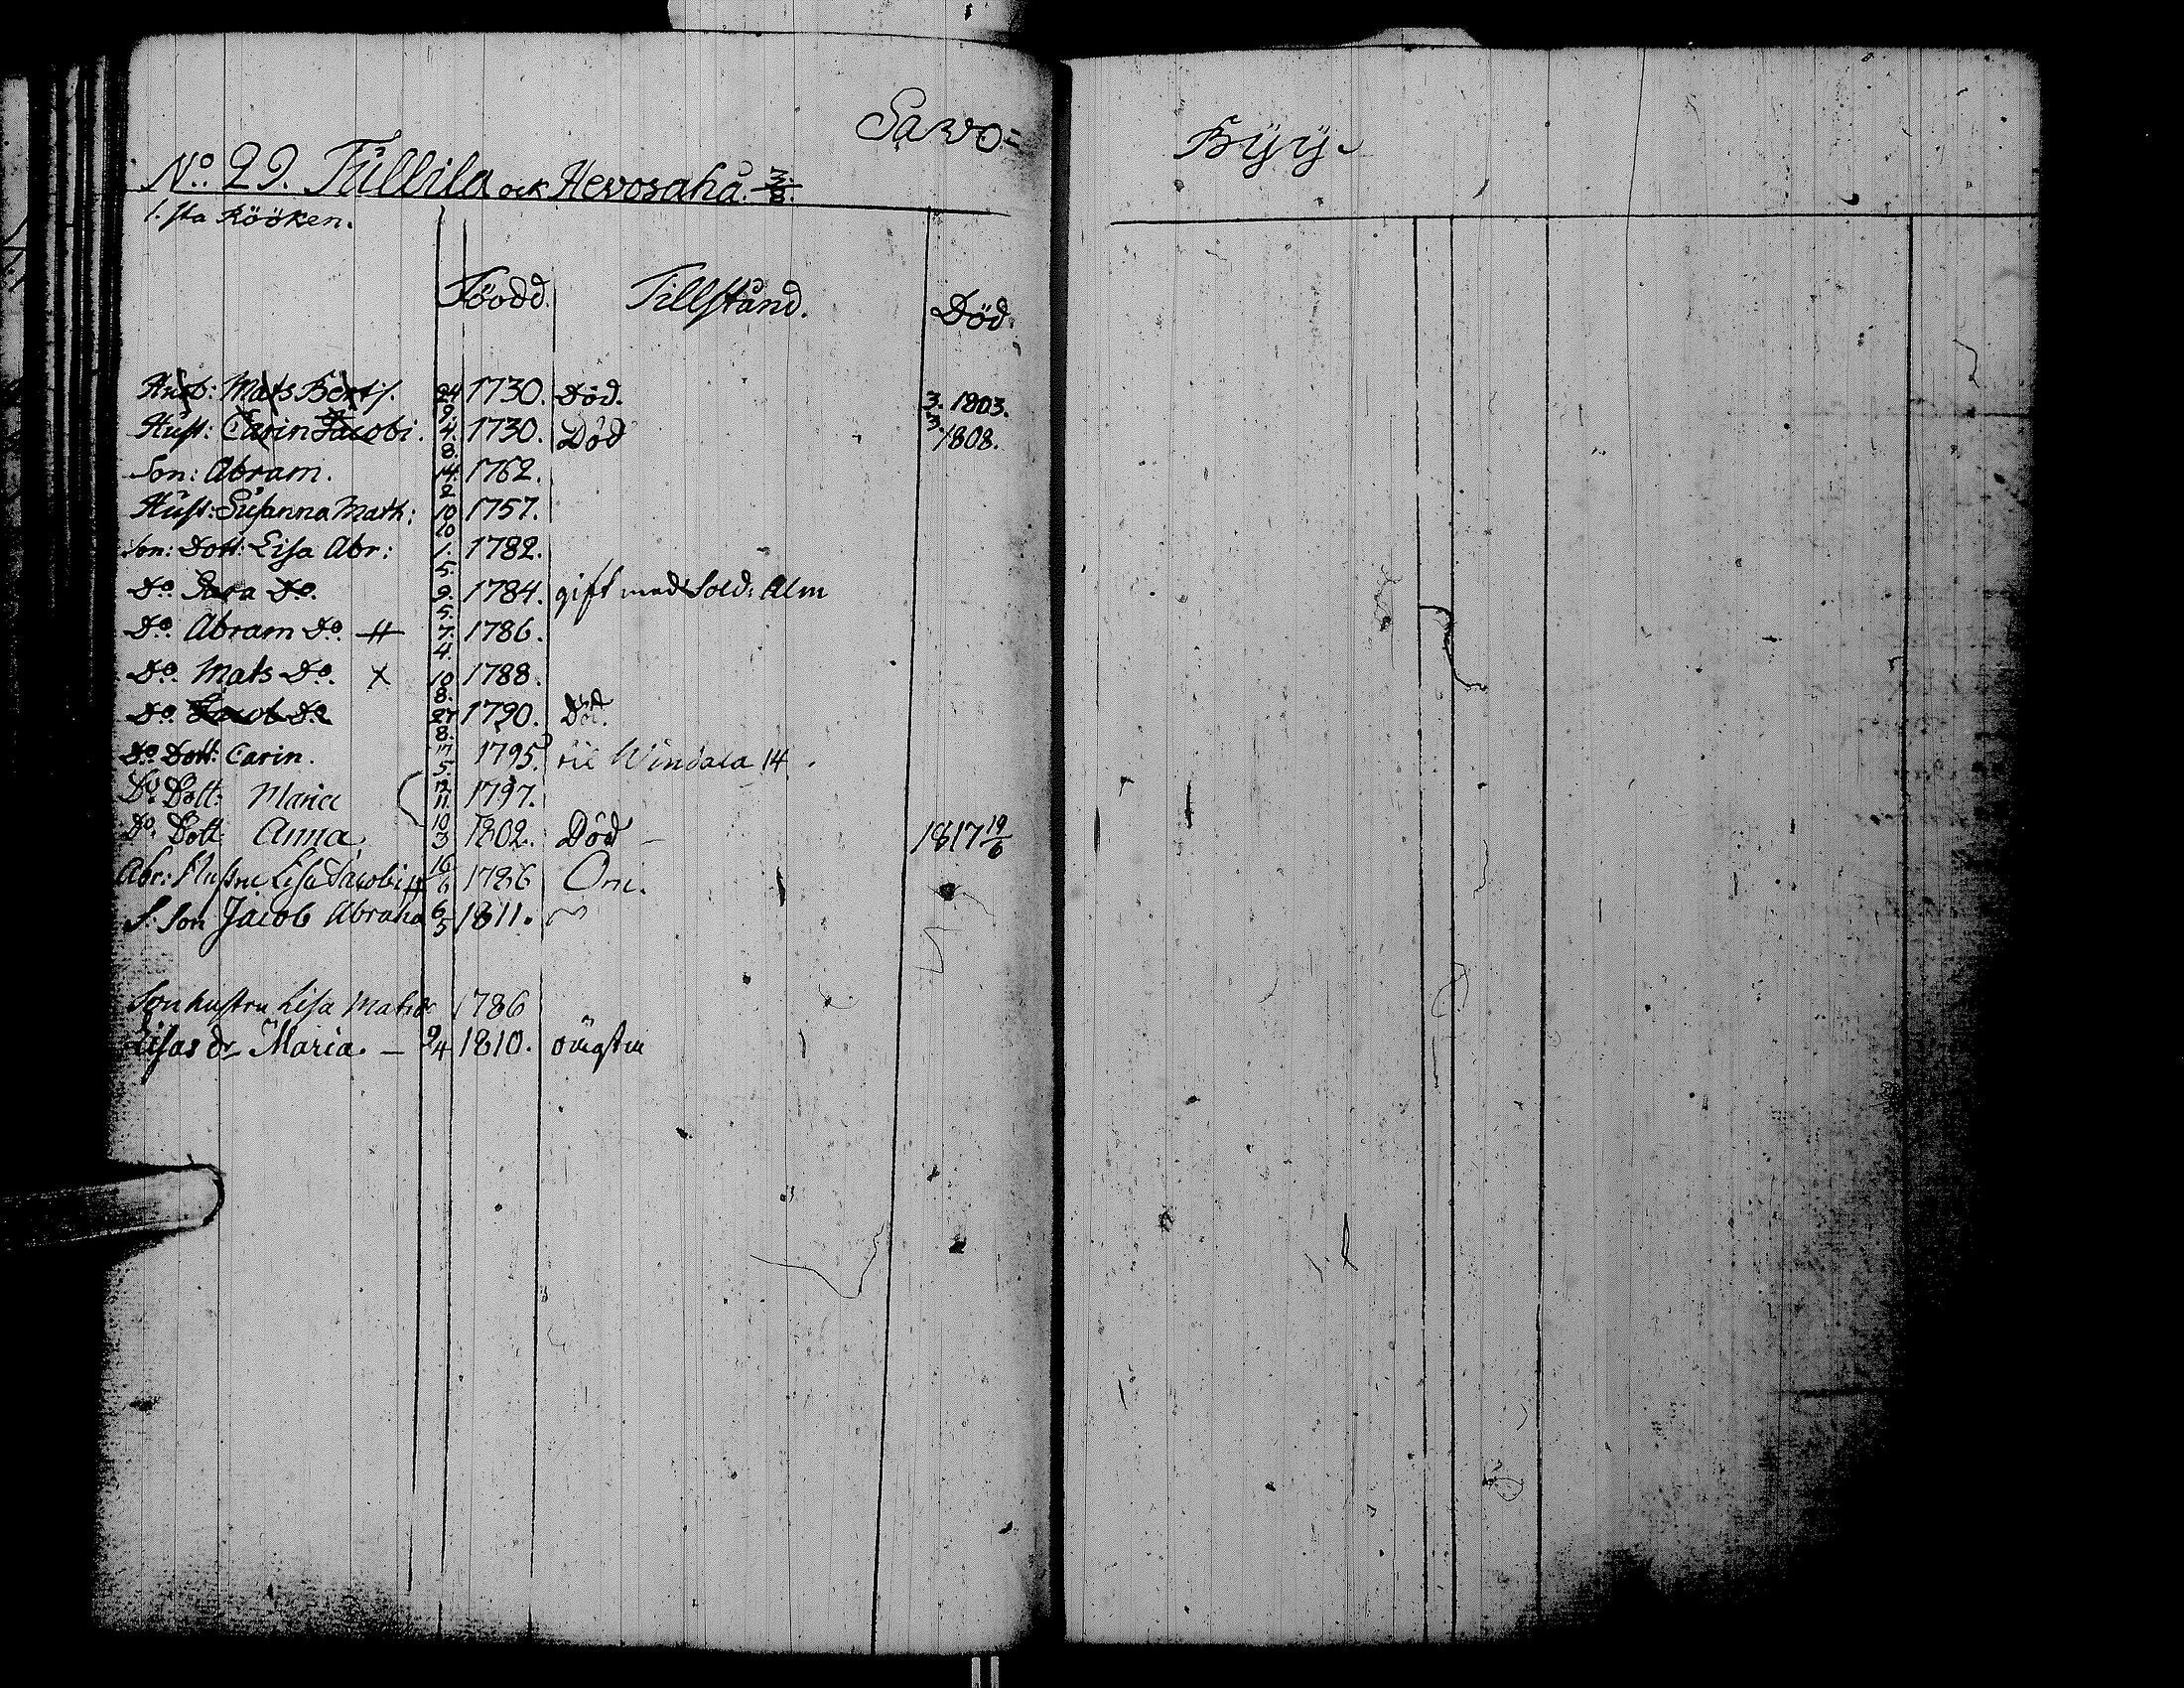 Savo=
Byy.
No. 29. Tullila och Hevosaha. 3/8.
1.sta Rööken.
Föodd. Tillstånd. Död.
Husb: Mats Bertj. 24/9. 1730. Död. 3/3. 1803.
Hust: Carin Jacobi. 4./8. 1730. Död 1808.
Son: Abram. 14./2 1762.
Hust: Susanna Math: 10/10 1757.
Son: Dott: Lisa Abr: 1./5. 1782.
Do. Sara Do. 9./5. 1784. gift med Sold: Alm
Do. Abram Do. # 7./4. 1786.
Do. Mats Do. X 10/8. 1788.
Do. Jacob Do 27/8. 1790. Död.
Do. Dott: Carin. 17/5. 1795. til Windala 14.
Do. Dott: Maria 12/11. 1797.
Do. Dott: Anna 10/3 1802. Död – 1817 19/6
Abr: Hustru Lisa Jacobi # 16/6 1786
S. Son Jacob Abraha 6/5 1811.
Sonhustru Lisa Matsdr 1786
Lisas dr Maria. – 9/4 1810.